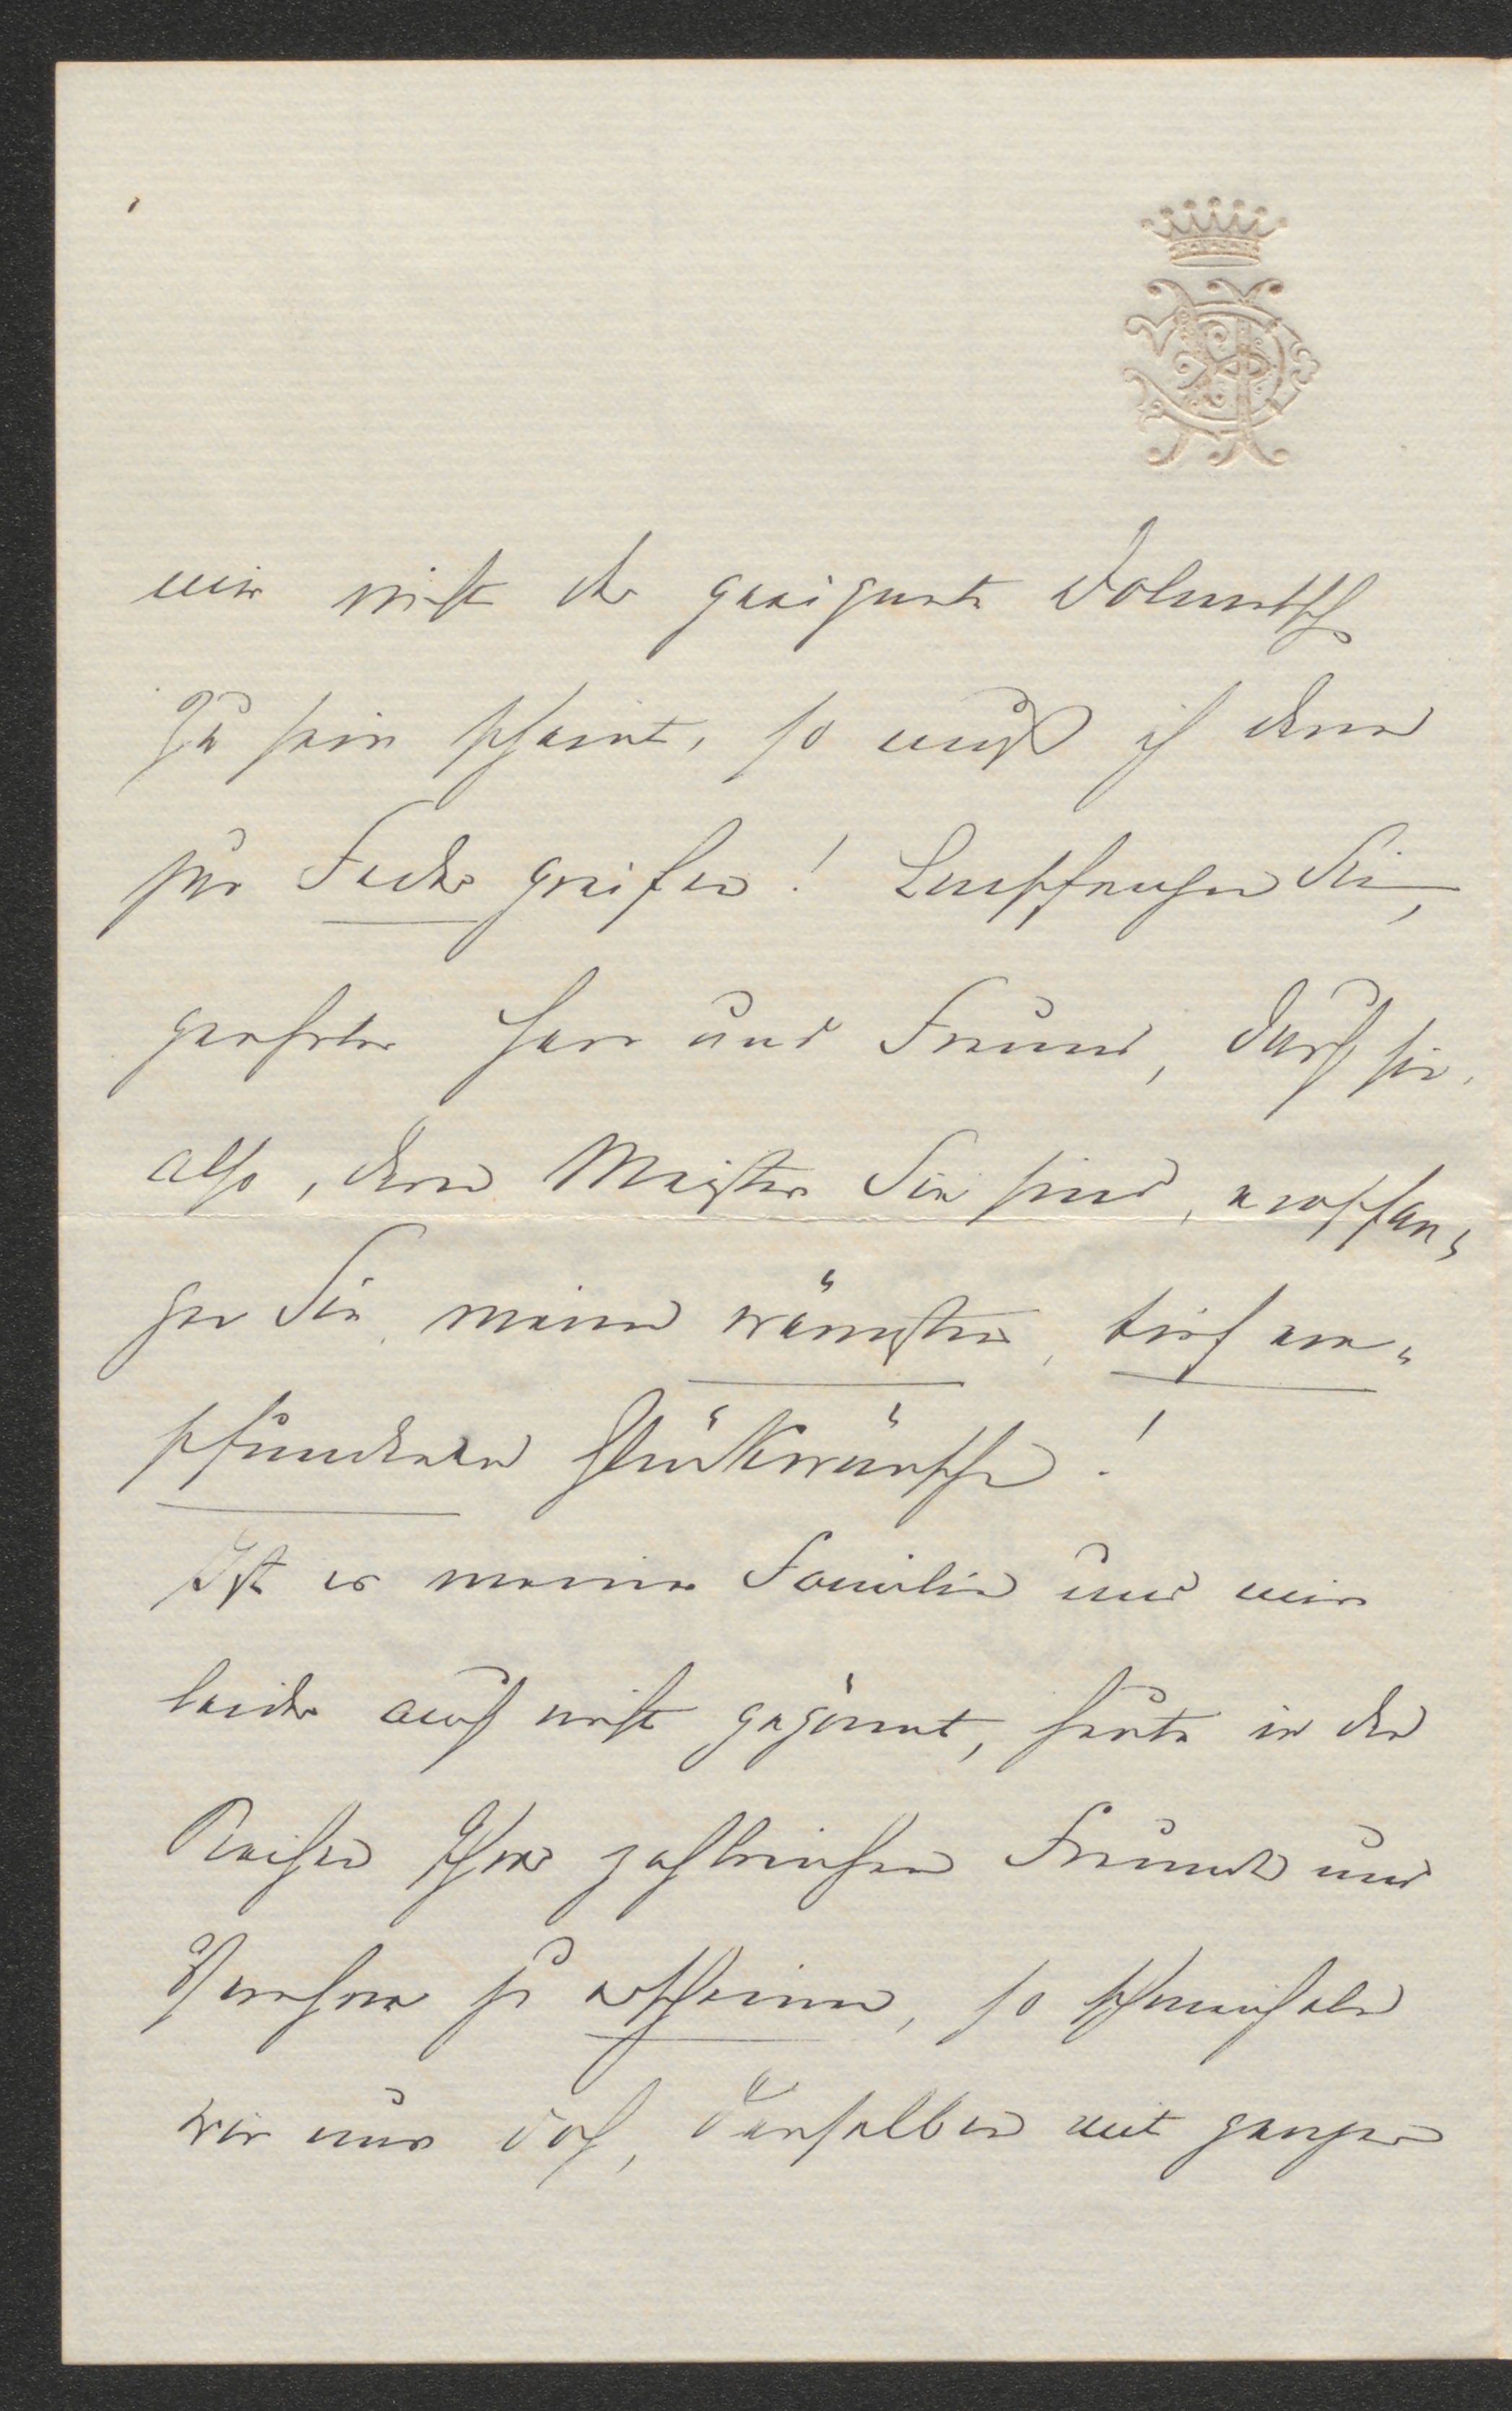 mir nicht der geeignete Dolmetsch
zu sein scheint, so muß ich denn
zur Feder greifen! Empfangen Sie,
geehrter Herr und Freund, durch sie,
also, deren Meister Sie sind, empfan„
gen Sie meine wärmsten, tief em„
pfundenen Glückwünsche!
Ist es meiner Familie und mir
leider auch nicht gegönnt, heute in den
Reihen Ihrer zahlreichen Freunde und
Verehrer zu erscheinen, so schmeicheln
wir uns doch, denselben mit ganzen